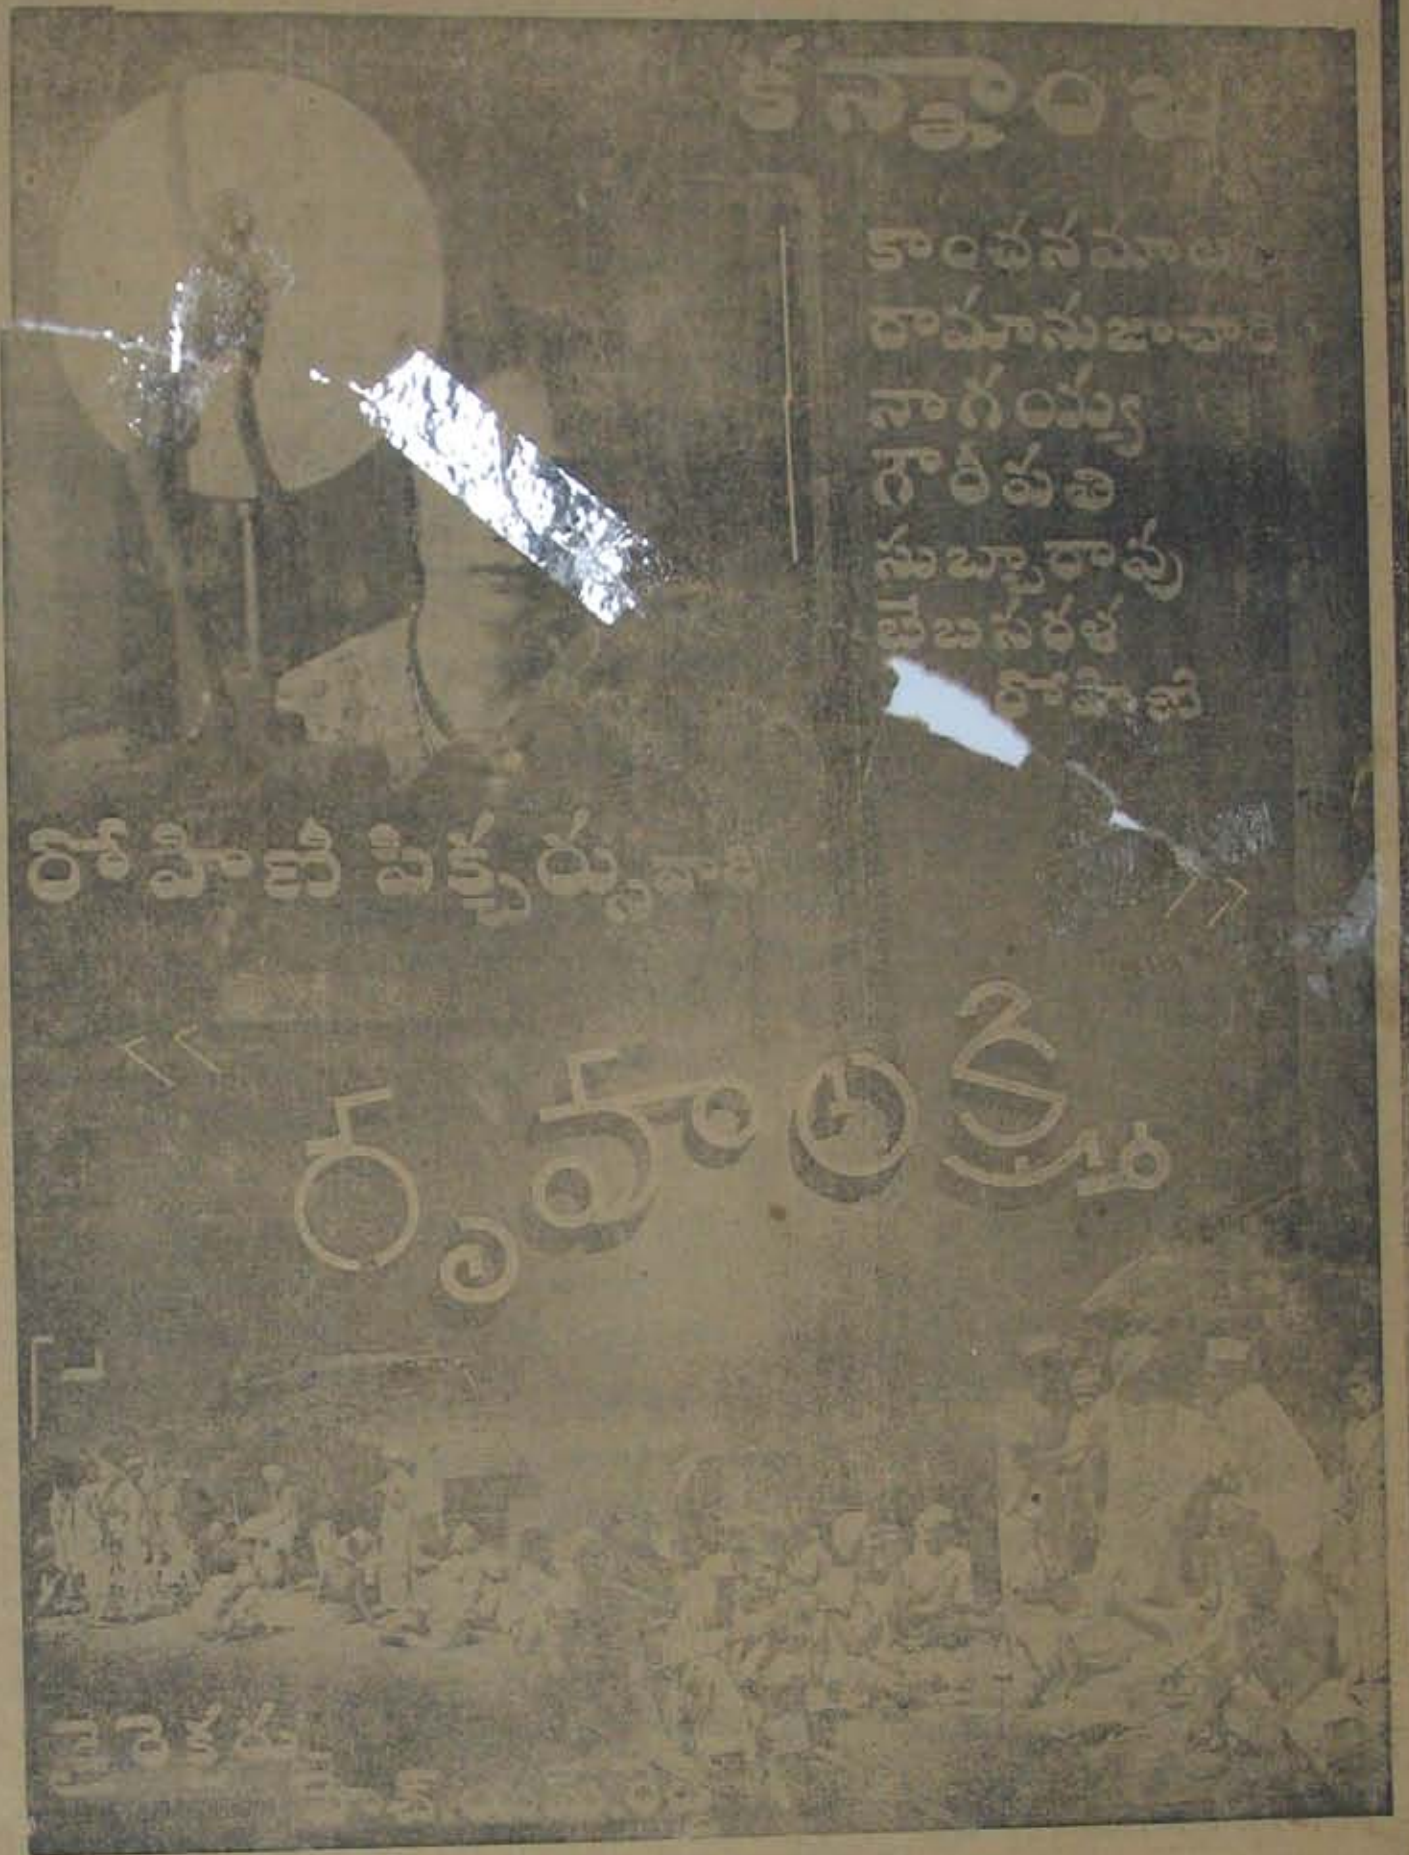 కన్నాంబ
కాంచనమాల
రామానుజాచారి
నాగయ్య
గౌరీపతి
సుబ్బారావు
బేబిసరళ
రోహిణి
రోహిణీ పిక్చర్సు వారి
" గృహలక్ష్మి "
డైరెక్టరు